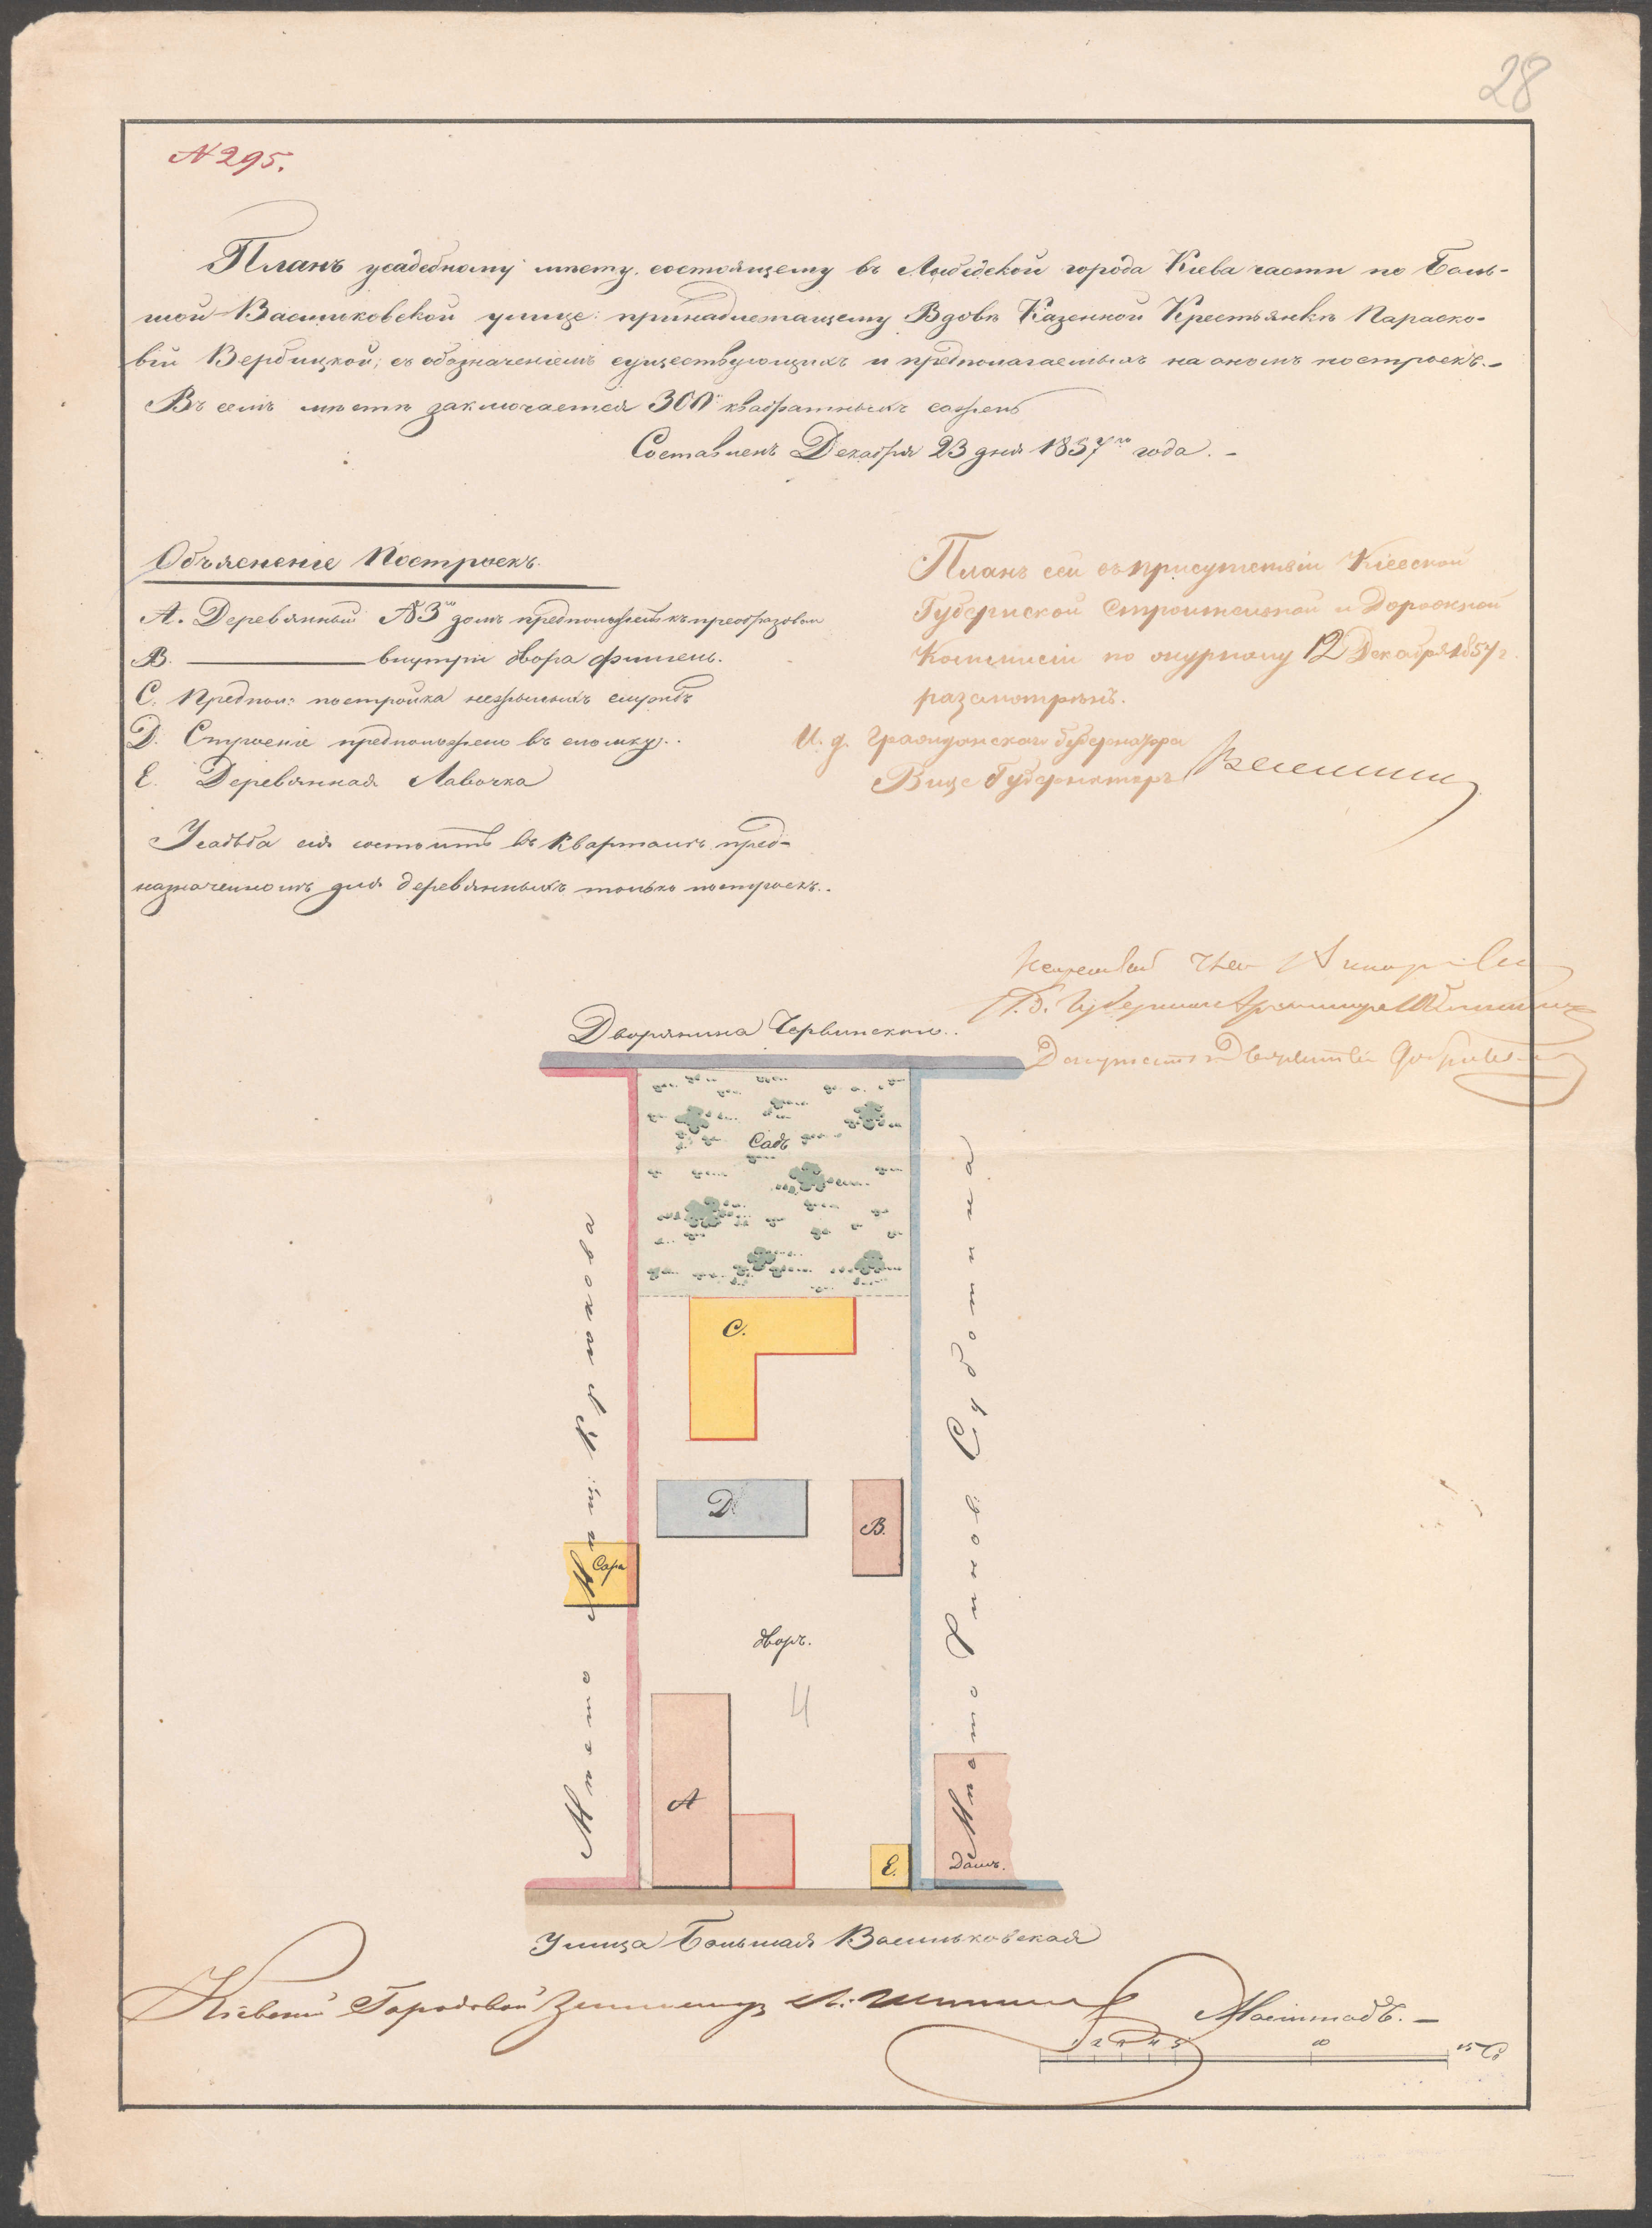 28
N 295.
Планъ усадебному мѣсту, состоящему въ Лыбедской города Кіева части по Боль-
шой Васильковской улице: принадлежащему Вдовѣ Казенной Крестьянкѣ Параско-
віи Вербицкой; съ обозначеніемъ существующихъ и предполагаемыхъ на ономъ построекъ.-
Въ семъ мѣстѣ заключается 300 квадратныхъ сажень
Составленъ Декабря 23 дня 1857го года. -
Объясненіе Построекъ.
А. Деревянный №3й домъ предположенъ къ преобразован
В. ——— внутри двора флигель.
С. Предпол: постройка нежилыхъ службъ
D. Строеніе предположено въ сломку..
Е. Деревянная Лавочка
Усадьба сія состоитъ въ кварталѣ, пред-
назначенномъ для деревянныхъ только построекъ..
Планъ сей въ присутствіи Кіевской
Губернской Строительной и Дорожной
Коммисіи по журналу 12 Декабря 1857 г.
разсмотрѣнъ.
И. д. Гражданскаго Губернатора
Вице Губернаторъ
Дворянина Червинскаго..
Садъ
С.
D.
В.
Сара
дворъ.
А
Е.
Домъ.
Мѣсто
Мѣсто Чинов. Суботина
Улица Большая Васильковская
Кіевскій Городовой Землемеръ
Масштабъ. -
1 2 3 4 5 10 15 С